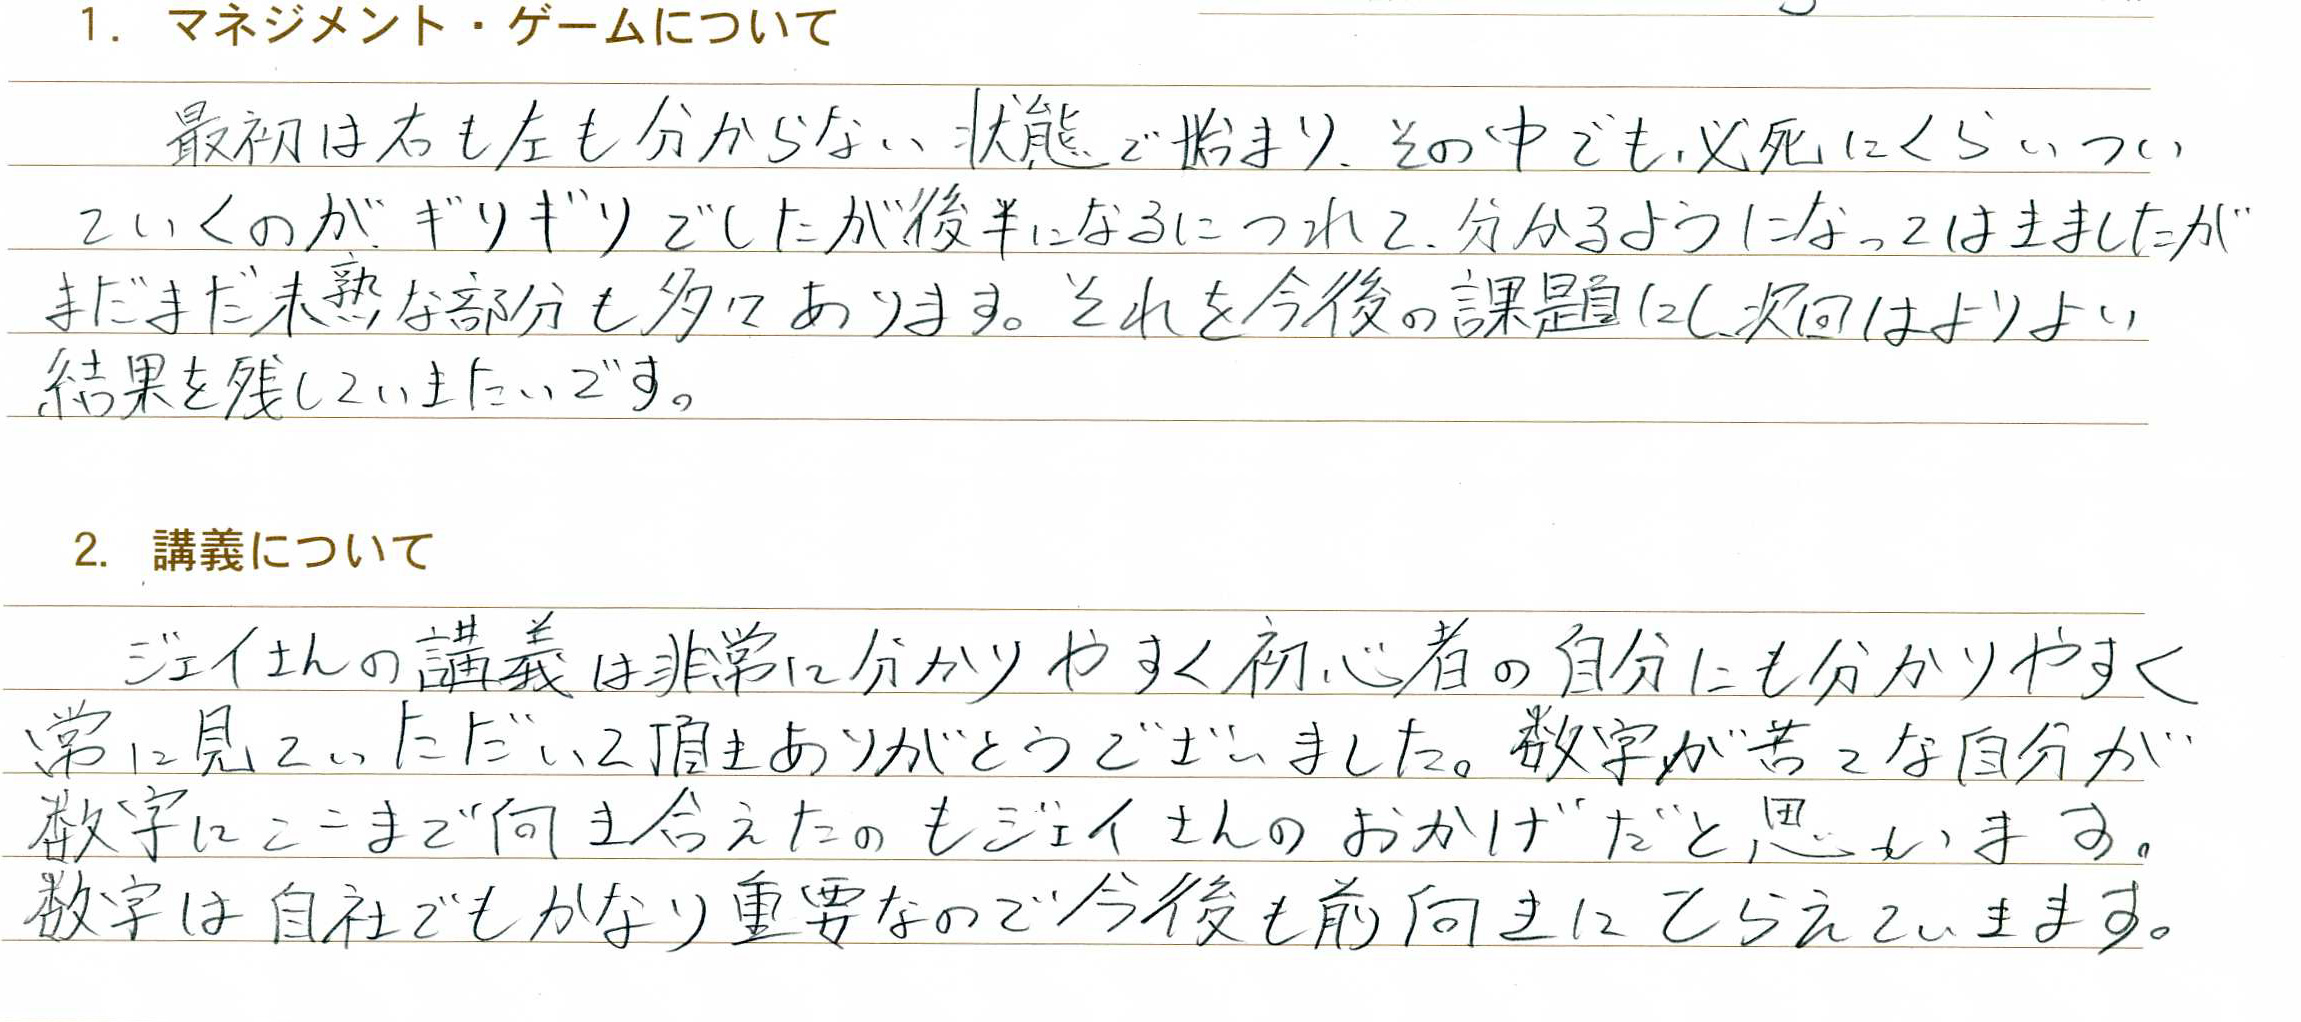 1. マネジメント・ゲームについて
最初は右も左も分からない状態で始まり、その中でも、必死にくらいつい
ていくのが、ギリギリでしたが後半になるにつれて、分かるようになってはきましたが
まだまだ未熟な部分も多々あります。それを今後の課題にし、次回はよりよい
結果を残していきたいです。
2. 講義について
ジェイさんの講義は非常に分かりやすく初心者の自分にも分かりやすく
常に見ていただいて頂きありがとうございました。数字が苦てな自分が
数字にここまで向き合えたのもジェイさんのおかげだと思います。
数字は自社でもかなり重要なので今後も前向きにとらえていきます。